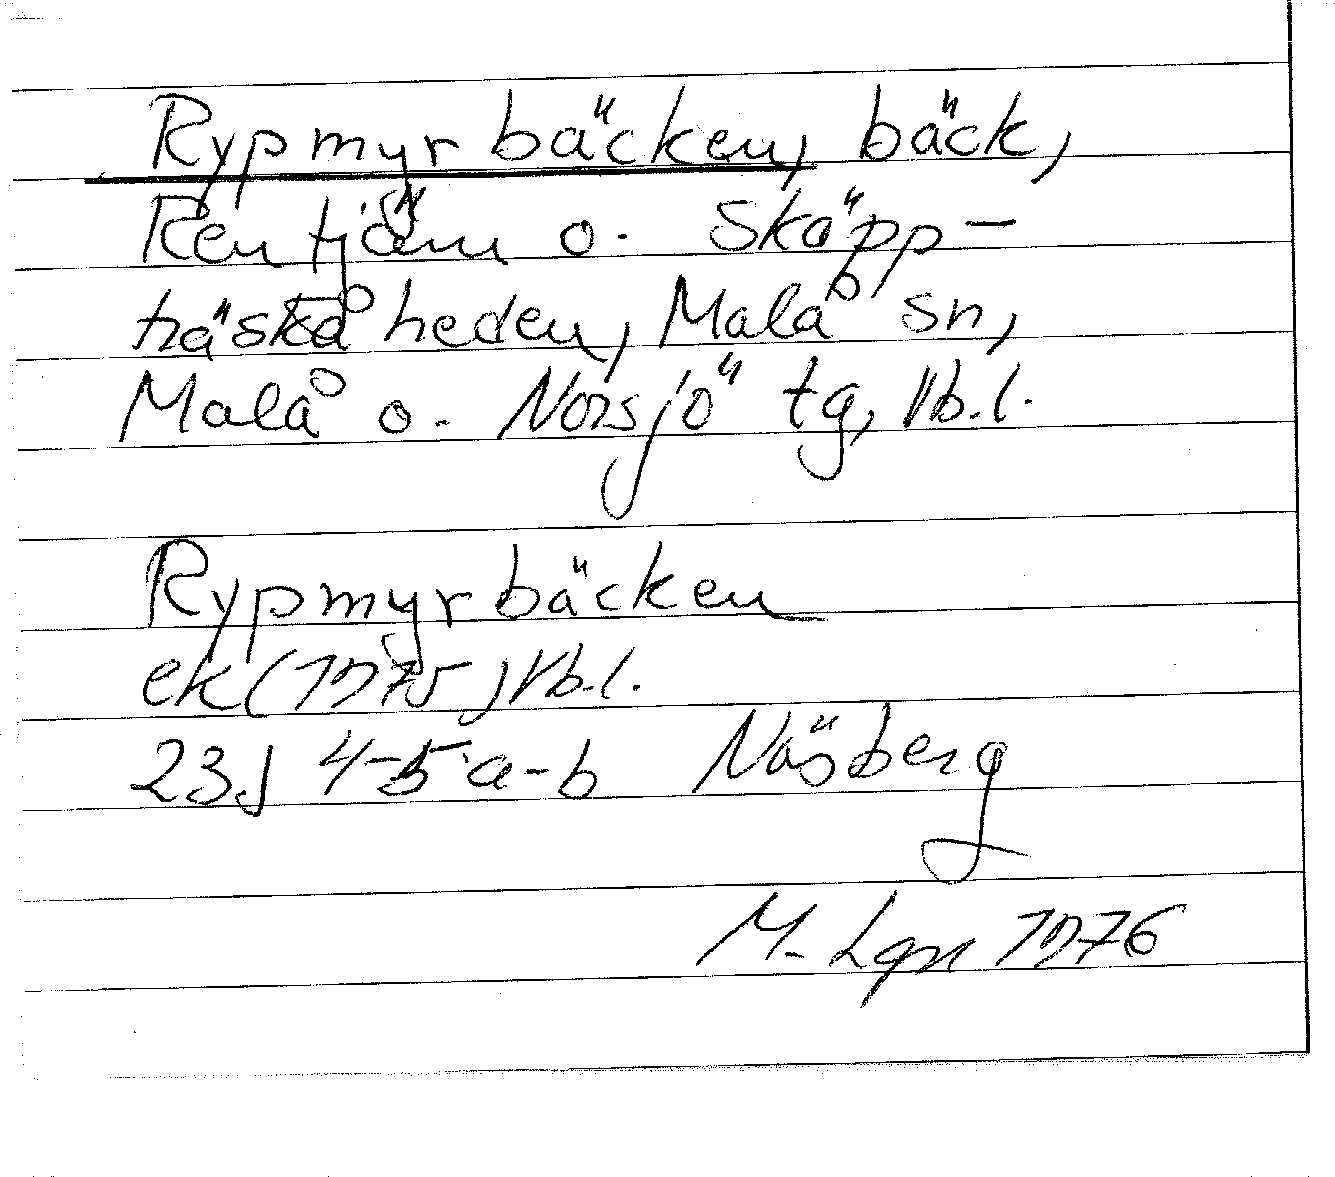 Rypmyrbäcken, bäck,
Rentjärn o. Skäpp-
träskåheden, Malå sn,
Malå o. Norsjö tg, Vb.l.
Rypmyrbäcken
ek (1975) Vb.l.
23J 4-5 a-b Näsberg
M. Lgn 1976